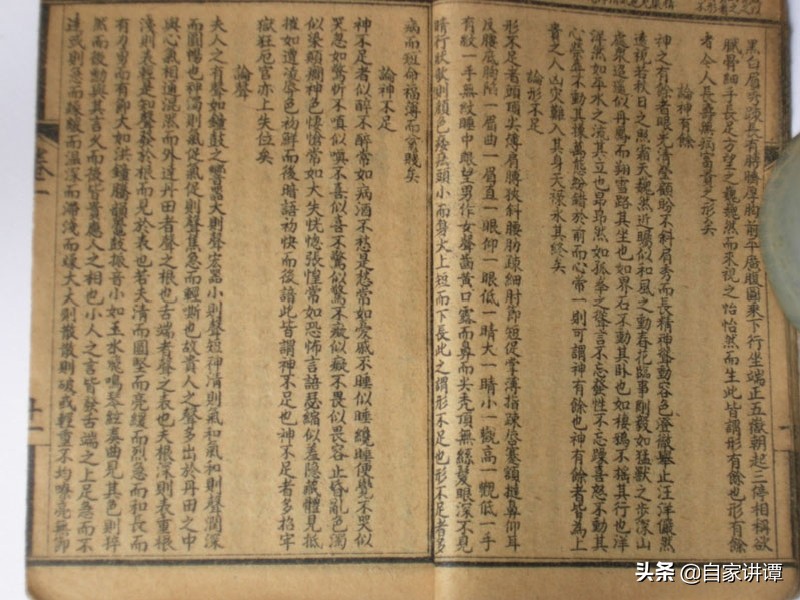 黑白眉秀疎長肩膊臍厚胸前平廣腹圓乘下行坐端正五嶽朝起三停相稱欲
膩骨細手長足方望之巍巍然而來視之怡怡然而生此皆謂形有餘也形有餘
者令人長壽無病富貴之形矣
論神有餘
神之有餘者眼光清瑩顧盼不斜眉秀而長精神聳動容色澄徹舉止汪洋儼然
遠視若秋日之照霜天巍然近矚似和風之動春花臨事剛毅如猛獸之步深山
處衆逍遙似丹鳳而翔雪路其坐也如界石不動其臥也如棲鴉不搖其行也洋
洋然如平水之流其立也昂昂然如孤峯之聳言不忘發性不忘躁喜怒不動其
心榮辱不動其操萬態紛錯於前而心常一則可謂神有餘也神有餘者皆為上
貴之人凶災難入其身天祿永其終矣
論形不足
形不足者頭頂尖薄肩膊狹斜腰肋疎細肘節短促掌薄指疎唇蹇額撻鼻仰耳
反腰底胸陷一眉曲一眉直一眼仰一眼低一睛大一睛小一顴高一顴低一手
有紋一手無紋睡中眼望男作女聲齒黃口露而鼻而尖禿頂無絲髮眼深不見
睛行則顏色頭小而身大上短而下長此之謂形不足也形不足者多
病而短命福薄而貧賤矣
論神不足
神不足者似醉不醉常如病酒不愁是愁常如憂戚不睡似睡纔睡便覺不哭似
哭忽如驚忻不嗔似嗔不喜似喜不驚似驚不癡似癡不畏似畏容止昏亂色濁
似染顛癇神色悽愴常如大失恍惚張惶常如恐怖言語瑟縮似羞隱藏體見抵
摧如遭凌辱色初鮮而後暗語初快而後訥此皆謂神不足也神不足者多招牢
獄狂厄官亦上失位矣
論聲
夫人之有聲如鐘鼓之響器大則聲宏器小則聲短神清則氣和氣和則聲潤深
而圓暢也神濁則氣促氣促則聲焦急而輕嘶也故貴人之聲多出於丹田之中
與心氣相通混然而外達丹田者聲之根也舌端者聲之表也夫根深則表重根
淺則表輕是知聲發於根而見於表也若夫清而圓堅而亮緩而烈急而和長而
有力勇而有節大如洪鐘騰韻鼉鼓振音小如玉水飛鳴琴絃奏曲見其色則猝
然而後動與其言久而後皆貴人之相也小人之言皆發舌端之上促急而不
達或則急而緩緩而濇深而滯淺而燥大大則散散則破或輕重不均嘹亮無節
卷一
头条 @自家讲谭